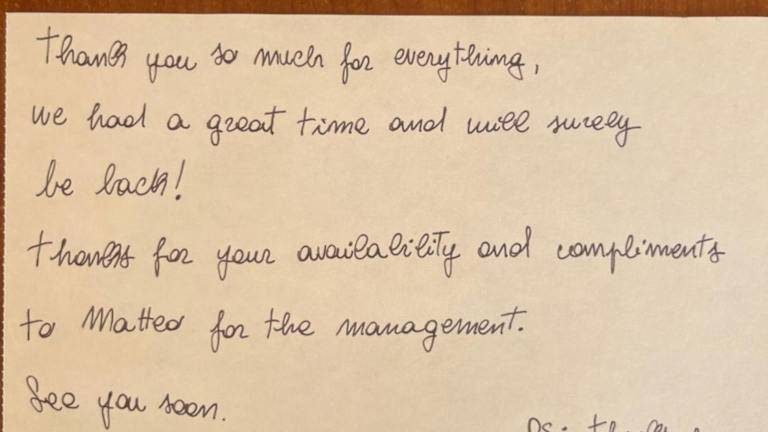 Thank you so much for everything,
we had a great time and will surely
be back!
Thanks for your availability and compliments
to Matteo for the management.
See you soon.
PS: